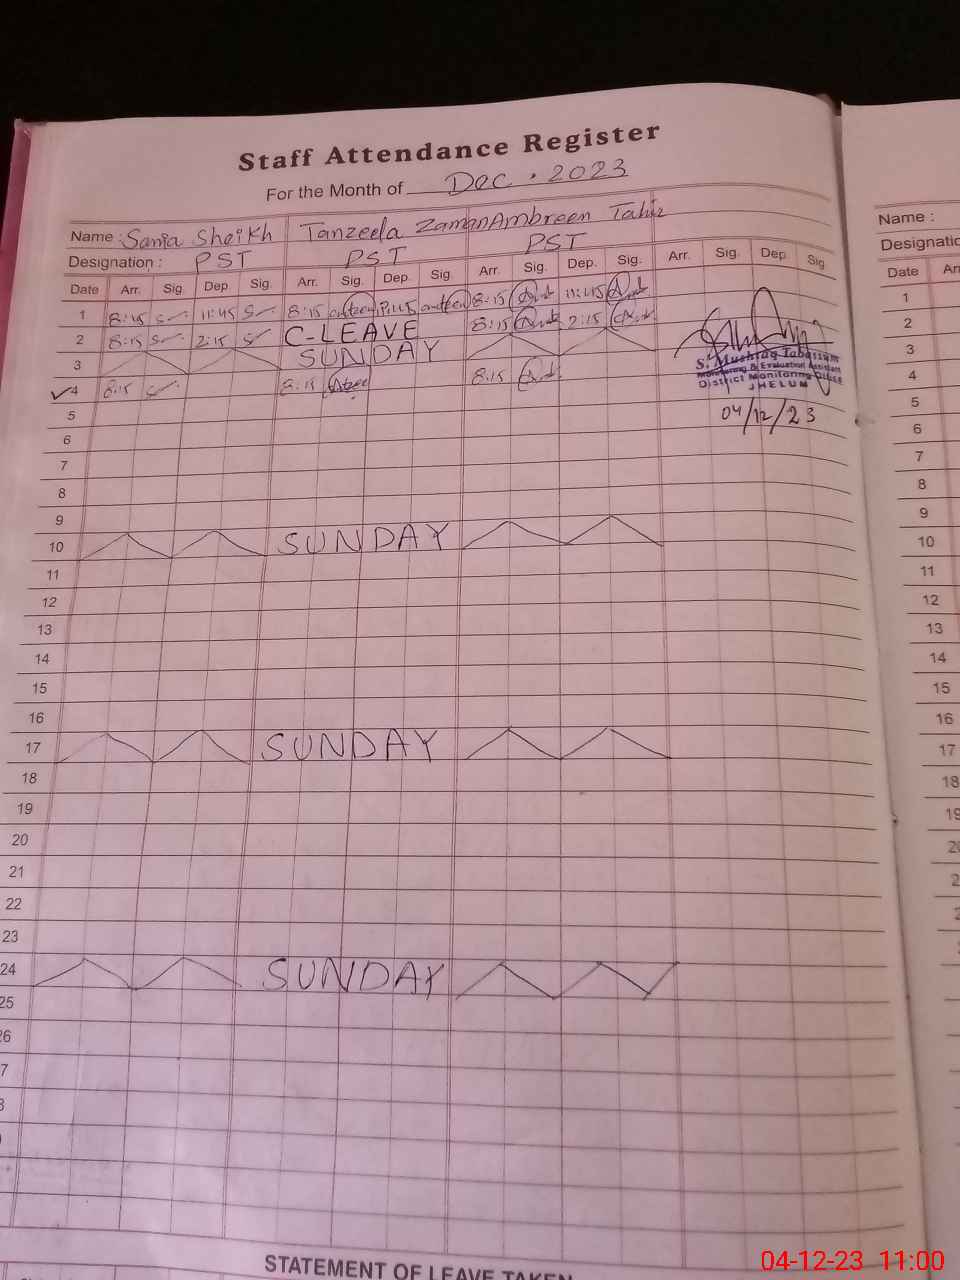 Staff Attendance Register
For the Month of Dec. 2023
Name : Sania Sheikh Tanzeela Zaman Ambreen Tahir
Designation : PST PST PST
Date Arr. Sig. Dep. Sig. Arr. Sig. Dep. Sig. Arr. Sig. Dep. Sig. Arr. Sig. Dep. Sig.
1 8:15 11:45 8:15 11:45 8:15 11:45
2 8:15 2:15 C-LEAVE 8:15 2:15
3 SUNDAY
4 8:15 8:15 8:15
S. Mushtaq Tabassum
Monitoring & Evaluation Assistant
District Monitoring Office
JHELUM
04/12/23
5
6
7
8
9
10 SUNDAY
11
12
13
14
15
16
17 SUNDAY
18
19
20
21
22
23
24 SUNDAY
25
26
7
8
STATEMENT OF LEAVE TAKEN
Name :
Designatio
Date Arr
1
2
3
4
5
6
7
8
9
10
11
12
13
14
15
16
17
18
19
20
2
2
04-12-23 11:00